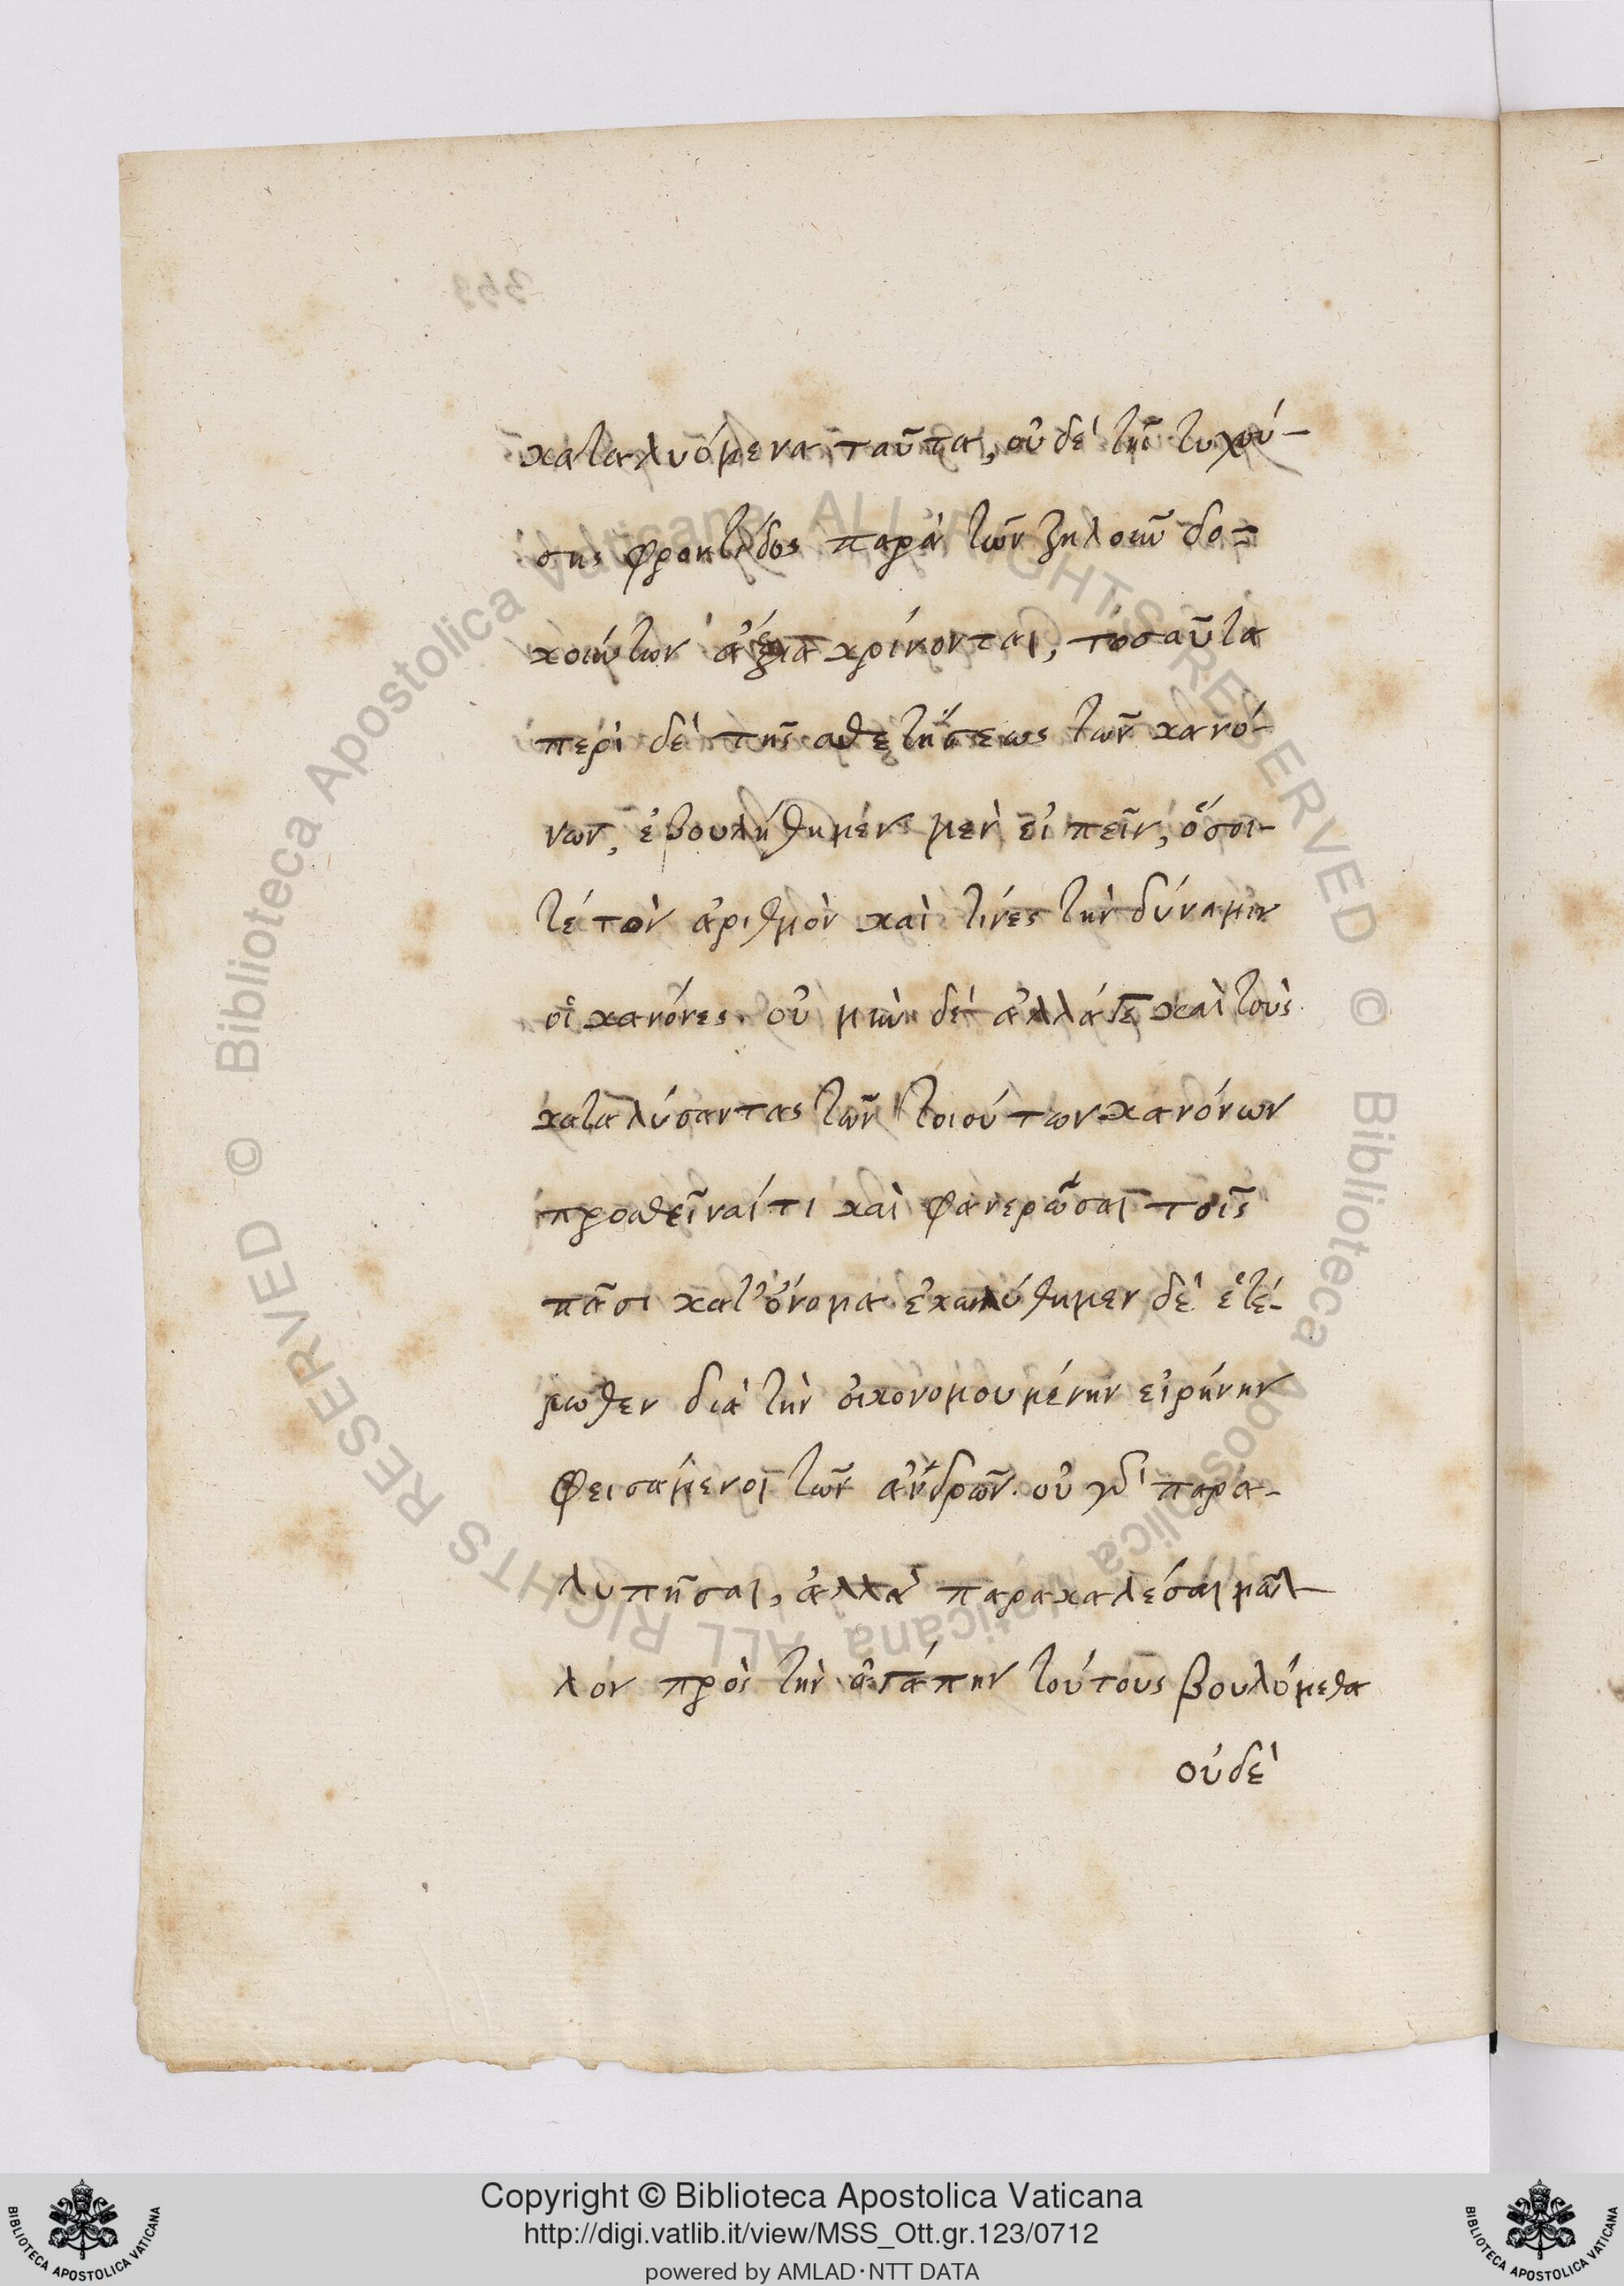 καταλυόμενα ταῦτα, οὐδὲ τῆς τυχού-
σης φροντίδος παρὰ τῶν ζηλοῦν δο=
κούντων ἄξια κρίνονται, τοσαῦτα
περὶ δὲ τῆς αθετήσεως τῶν κανό-
νων, ἐβουλήθημεν μὲν εἰπεῖν, ὅσοι-
τέ τὸν ἀριθμὸν καὶ τίνες τὴν δύναμιν
οἱ κανόνες. οὐ μὴν δὲ ἀλλάγε καὶ τοὺς
καταλύσαντας τῶν τοιούτων κανόνων
προσθεῖναί τι καὶ φανερῶσαι τοῖς
πᾶσι κατ' ὄνομα ἐκωλύθημεν δὲ ἑτέ-
ρωθεν διὰ τὴν οἰκονομουμένην εἰρήνην
φεισάμενοι τῶν ἀνδρῶν. οὐ γὰρ παρα-
λυπῆσαι, ἀλλὰ παρακαλέσαι μᾶλ-
λον πρὸς τὴν ἀγάπην τούτους βουλόμεθα
οὐδὲ
Copyright © Biblioteca Apostolica Vaticana
http://digi.vatlib.it/view/MSS_Ott.gr.123/0712
powered by AMLAD·NTT DATA
BIBLIOTECA APOSTOLICA VATICANA
BIBLIOTECA APOSTOLICA VATICANA
© Biblioteca Apostolica Vaticana ALL RIGHTS RESERVED
© Biblioteca Apostolica Vaticana ALL RIGHTS RESERVED